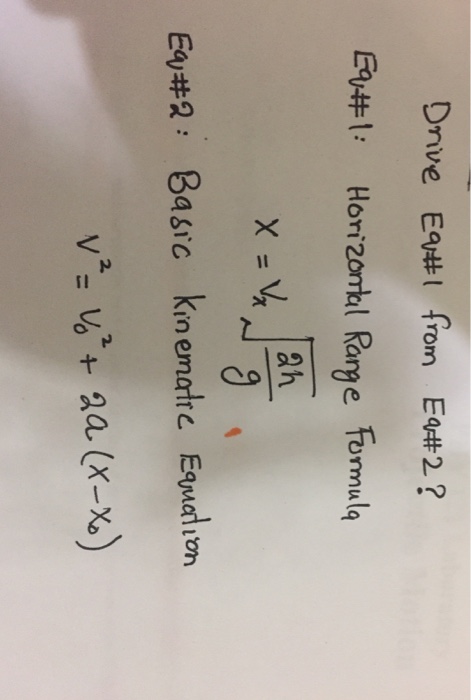 Drive Eq#1 from Eq#2?
Eq#1: Horizontal Range Formula
x = Vx √(2h/g)
Eq#2: Basic kinematic Equation
V² = V₀² + 2a (x-x₀)